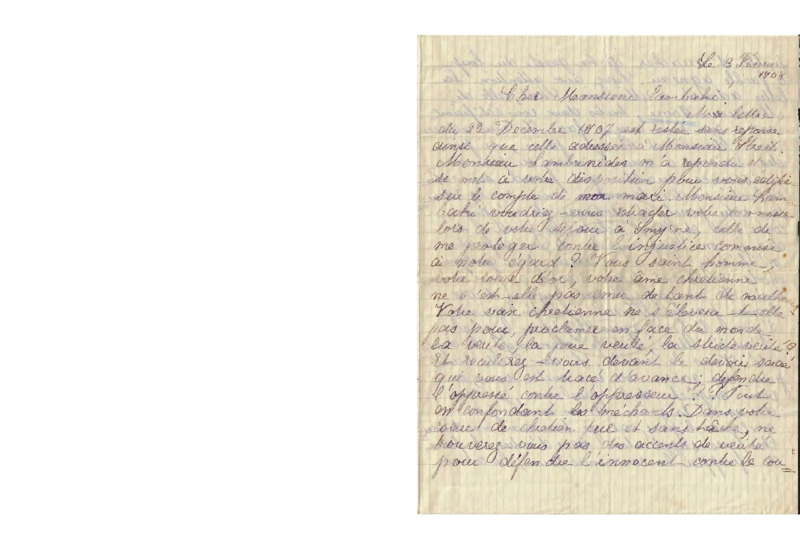 Le 3 Fevrier
1908
Cher Monsieur Lambakis
Ma lettre
du 22 Decembre 1907 est restée sans reponse
ainsi que celle adressée à Monsieur Streit.
Monsieur Lambrinides m'a repondu et
se met à votre disposition pour vous edifier
sur le compte de mon mari. Monsieur Lam-
bakis voudriez-vous retracter votre promesse
lors de votre sejour à Smyrne, celle de
me proteger contre l'injustices commise
à notre égard? Vous saint homme,
votre coeur d'or, votre âme chretienne
ne s'est-elle pas emue de tant de
Votre voix chretienne ne s'élevera-t-elle
pas pour, proclamer en face du monde
la verité, la pure verité, la stricte verité?
Et reculerez-vous devant le devoir sacré
qui vous est tracé d'avance; defendre
l'oppressé contre l'oppresseur? Tout
en confondant les mechants. Dans votre
coeur de chretien pur et sans tâche, ne
trouverez vous pas des accents de verité
pour défendre l'innocent contre le cou=